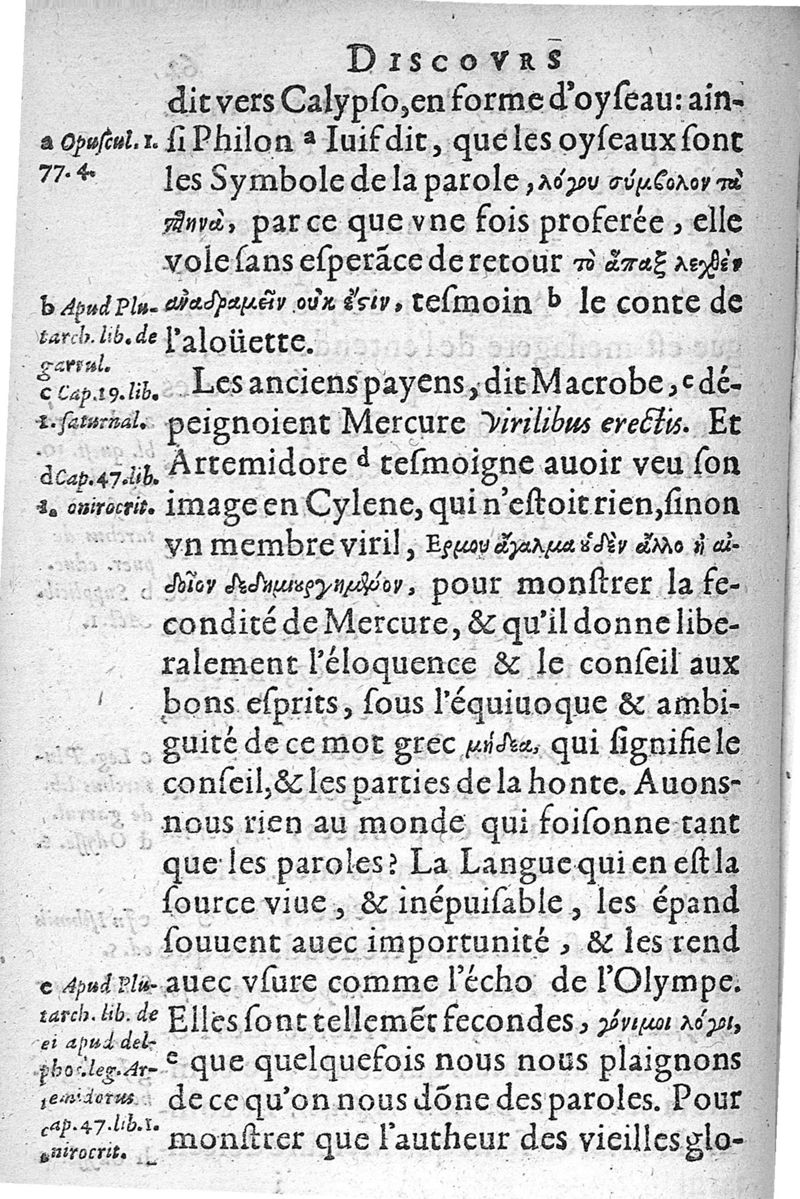 DISCOVRS
dit vers Calypſo, en forme d'oyſeau: ain-
ſi Philon a Iuif dit, que les oyſeaux ſont
les Symbole de la parole, λόγου σύμβολον τὰ
πτηνὰ, par ce que vne fois proferée, elle
vole ſans eſperãce de retour τὸ ἅπαξ λεχθὲν
ἀναδραμεῖν οὐκ ἔϛιν, teſmoin b le conte de
l'aloüette.
Les anciens payens, dit Macrobe, c dé-
peignoient Mercure virilibus erectis. Et
Artemidore d teſmoigne auoir veu ſon
image en Cylene, qui n'eſtoit rien, ſinon
vn membre viril, Ερμου ἄγαλμα ȣδὲν ἄλλο ἢ αἰ-
δοῖον δεδημιȣργημένον, pour monſtrer la fe-
condité de Mercure, & qu'il donne libe-
ralement l'éloquence & le conſeil aux
bons eſprits, ſous l'équiuoque & ambi-
guité de ce mot grec μήδεα, qui ſignifie le
conſeil, & les parties de la honte. Auons-
nous rien au monde qui foiſonne tant
que les paroles? La Langue qui en eſt la
ſource viue, & inépuiſable, les épand
ſouuent auec importunité, & les rend
auec vſure comme l'écho de l'Olympe.
Elles ſont tellemẽt fecondes, γόνιμοι λόγοι,
e que quelquefois nous nous plaignons
de ce qu'on nous dõne des paroles. Pour
monſtrer que l'autheur des vieilles glo-
a Opuſcul. 1.
77. 4.
b Apud Plu-
tarch. lib. de
garrul.
c Cap. 19. lib.
1. ſaturnal.
d Cap. 47. lib.
1. onirocrit.
e Apud Plu-
tarch. lib. de
ei apud del-
phos. leg. Ar-
temidorus
cap. 47. lib. 1.
onirocrit.